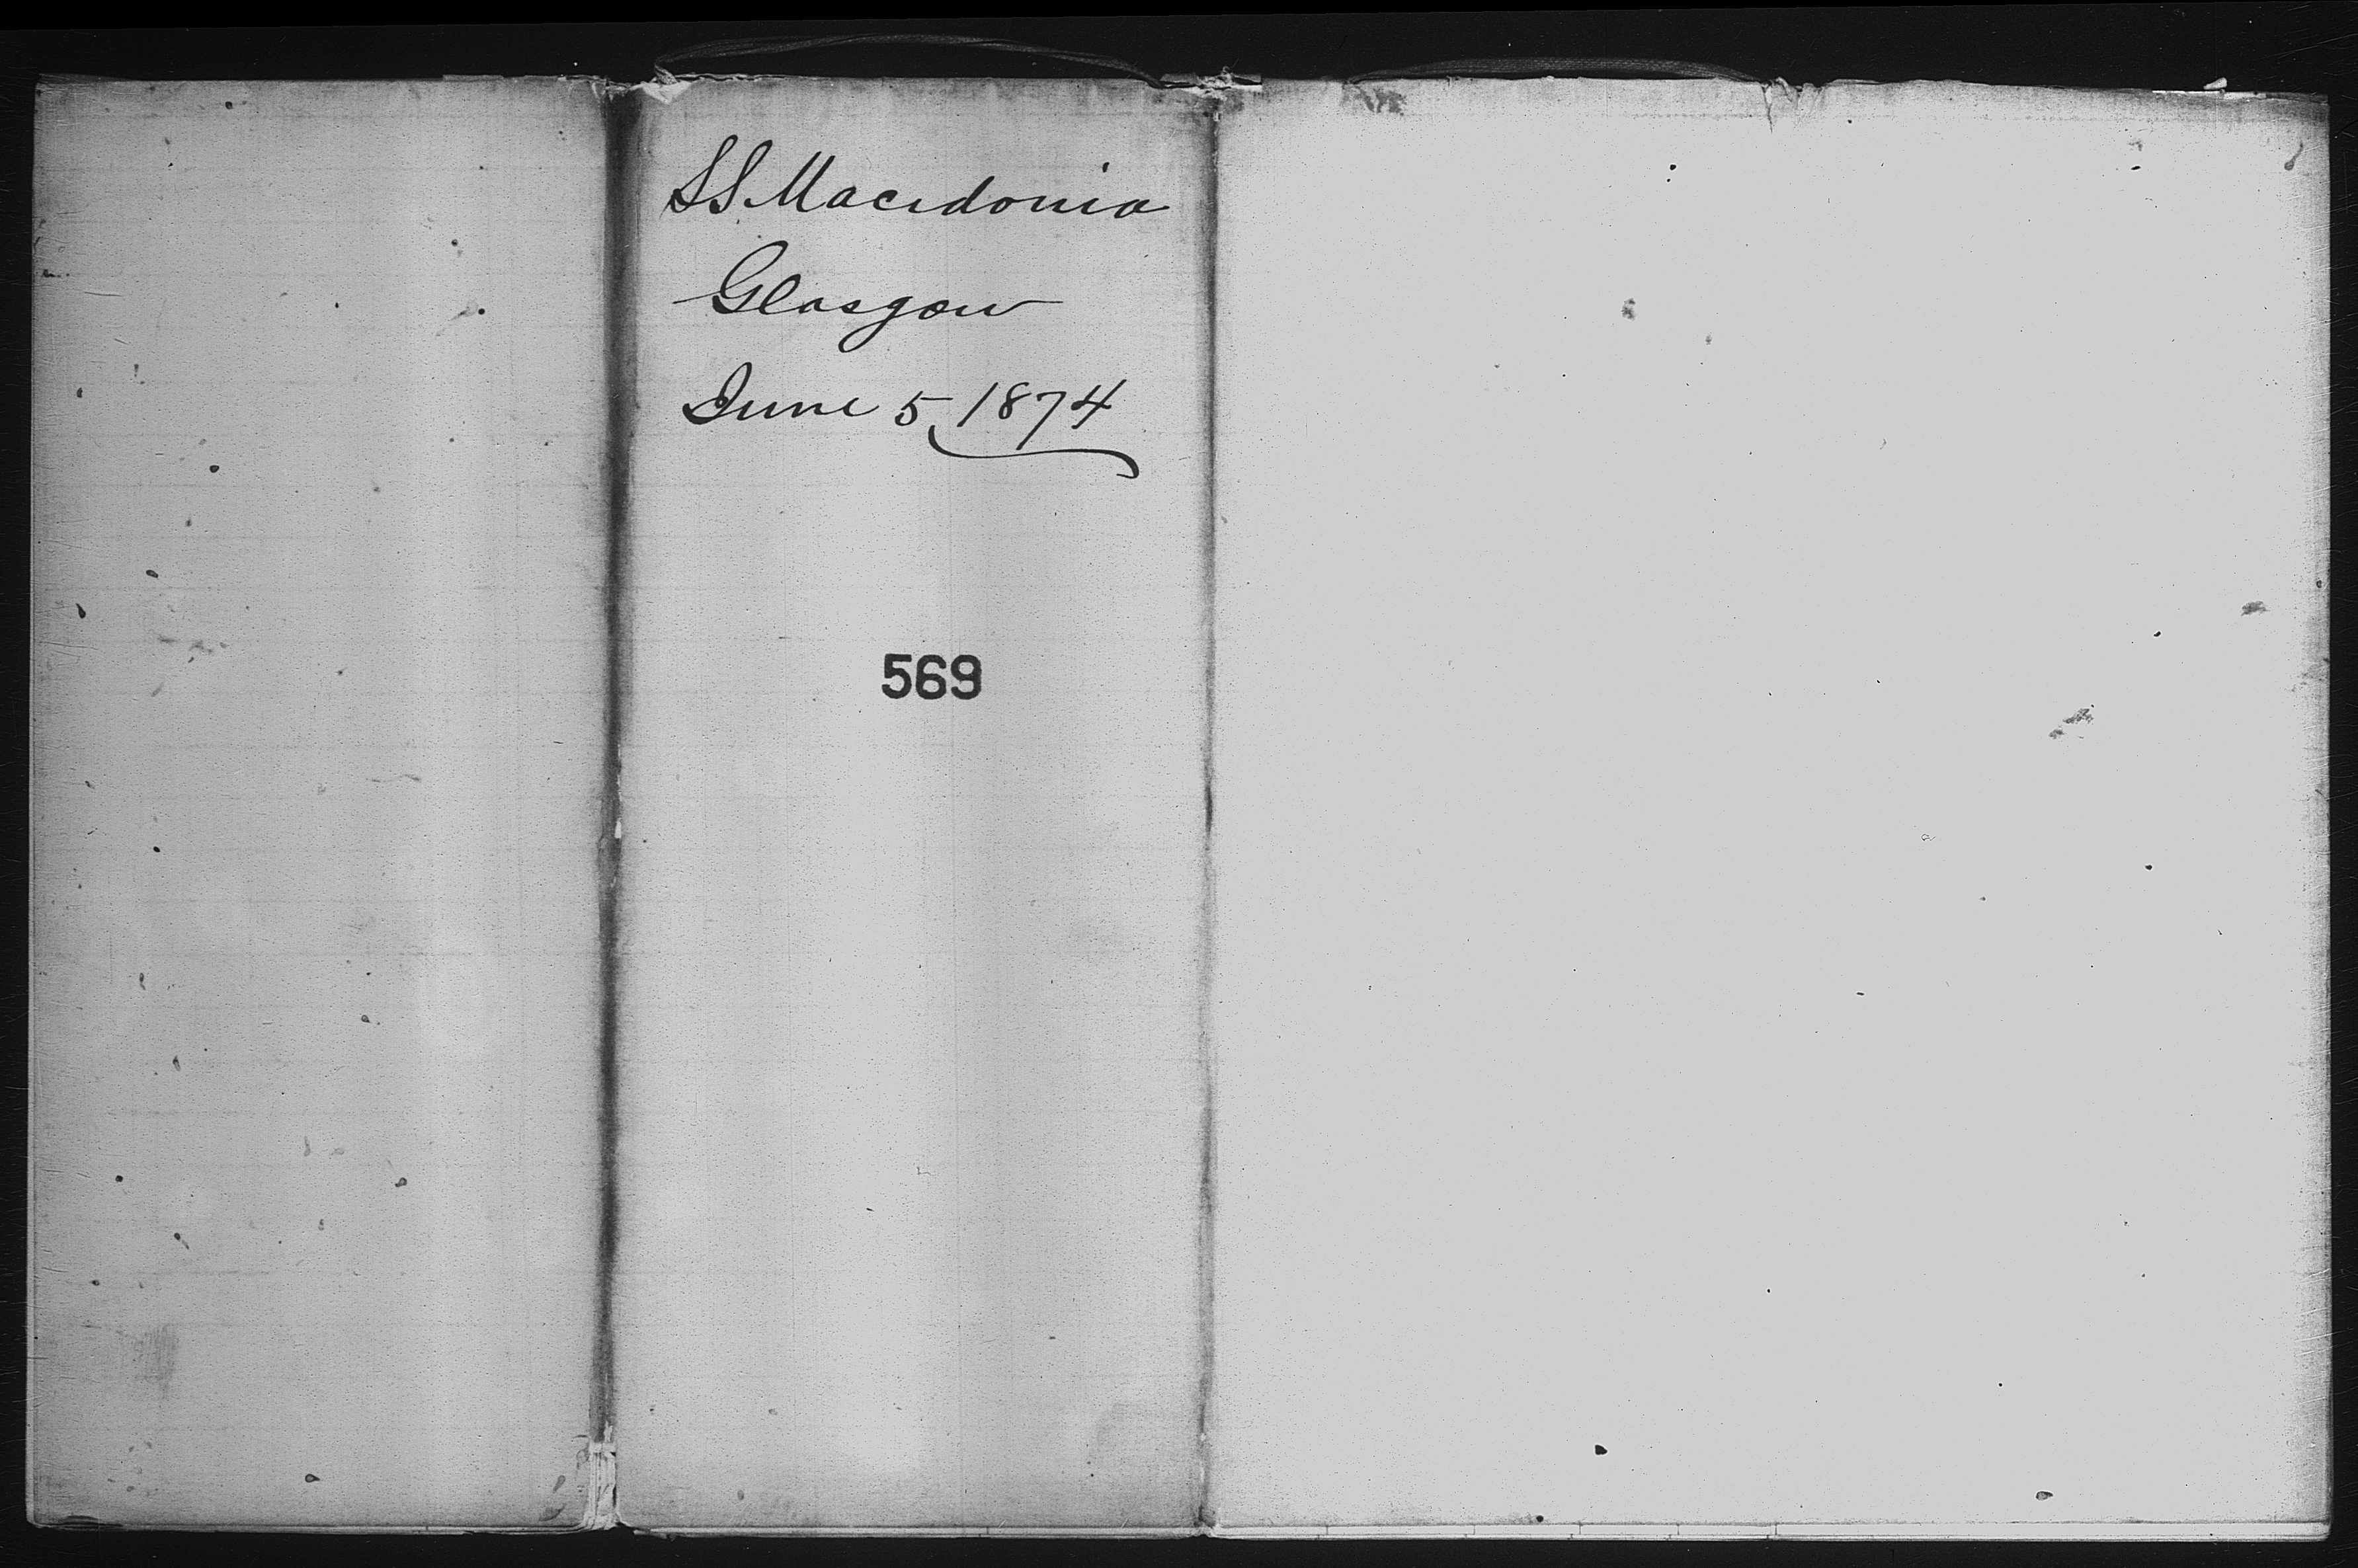 SS Macedonia
Glasgow
June 5 1874
569